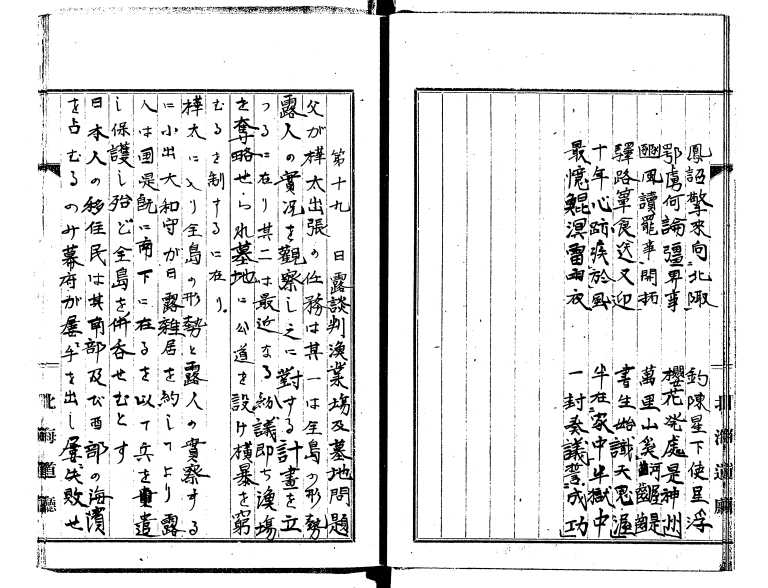 鳳詔擎來向北陬 釣陳星下使星浮
鄂虜何論彊界事 櫻花発處是神州
豳風讀罷幸開柄 萬里山奚
驛路箪食送又迎 書生始識天恩渥
十年心跡疾於風 半在家中半獄中
最憶鯤溟雷雨夜 一封奏議誓成功
北海道廳
第十九 日露談判漁業場及墓地問題
父が樺太出張の任務は其一は全島の形勢
露人の實況を観察し之に對する計畫を立
つるに在り其二は最近なる紛議即ち漁場
を奪略せられ墓地に公道を設け横暴を窮
むるを制するに在り。
樺太に入り全島の形勢と露人の實察する
に小出大和守が日露雜居を約してより露
人は国是既に南下に在るを以て兵を重遣
し保護し殆ど全島を併呑せむとす
日本人の移住民は其南部及び西部の海濱
を占むるのみ幕府が屡々手を出し屡々失敗せ
北海道廳